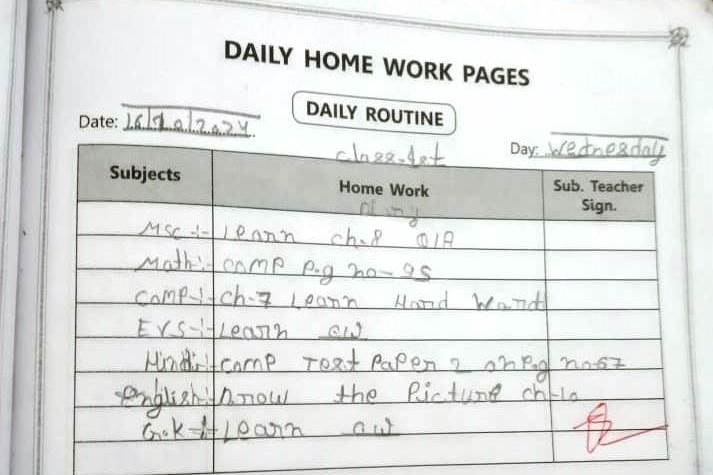 DAILY HOME WORK PAGES
DAILY ROUTINE
Date: 16/10/2024
Day: Wednesday
class-1st
Subjects Home Work Sub. Teacher Sign.
MSC :- Learn ch.8 Q/A
Math :- comp P.g no- 95
Comp :- Ch-7 Learn Hard Word
EVS :- Learn cw
Hindi :- comp Test Paper 2 on Pag no 67
English :- Draw the Picture ch-10
G.K :- Learn cw